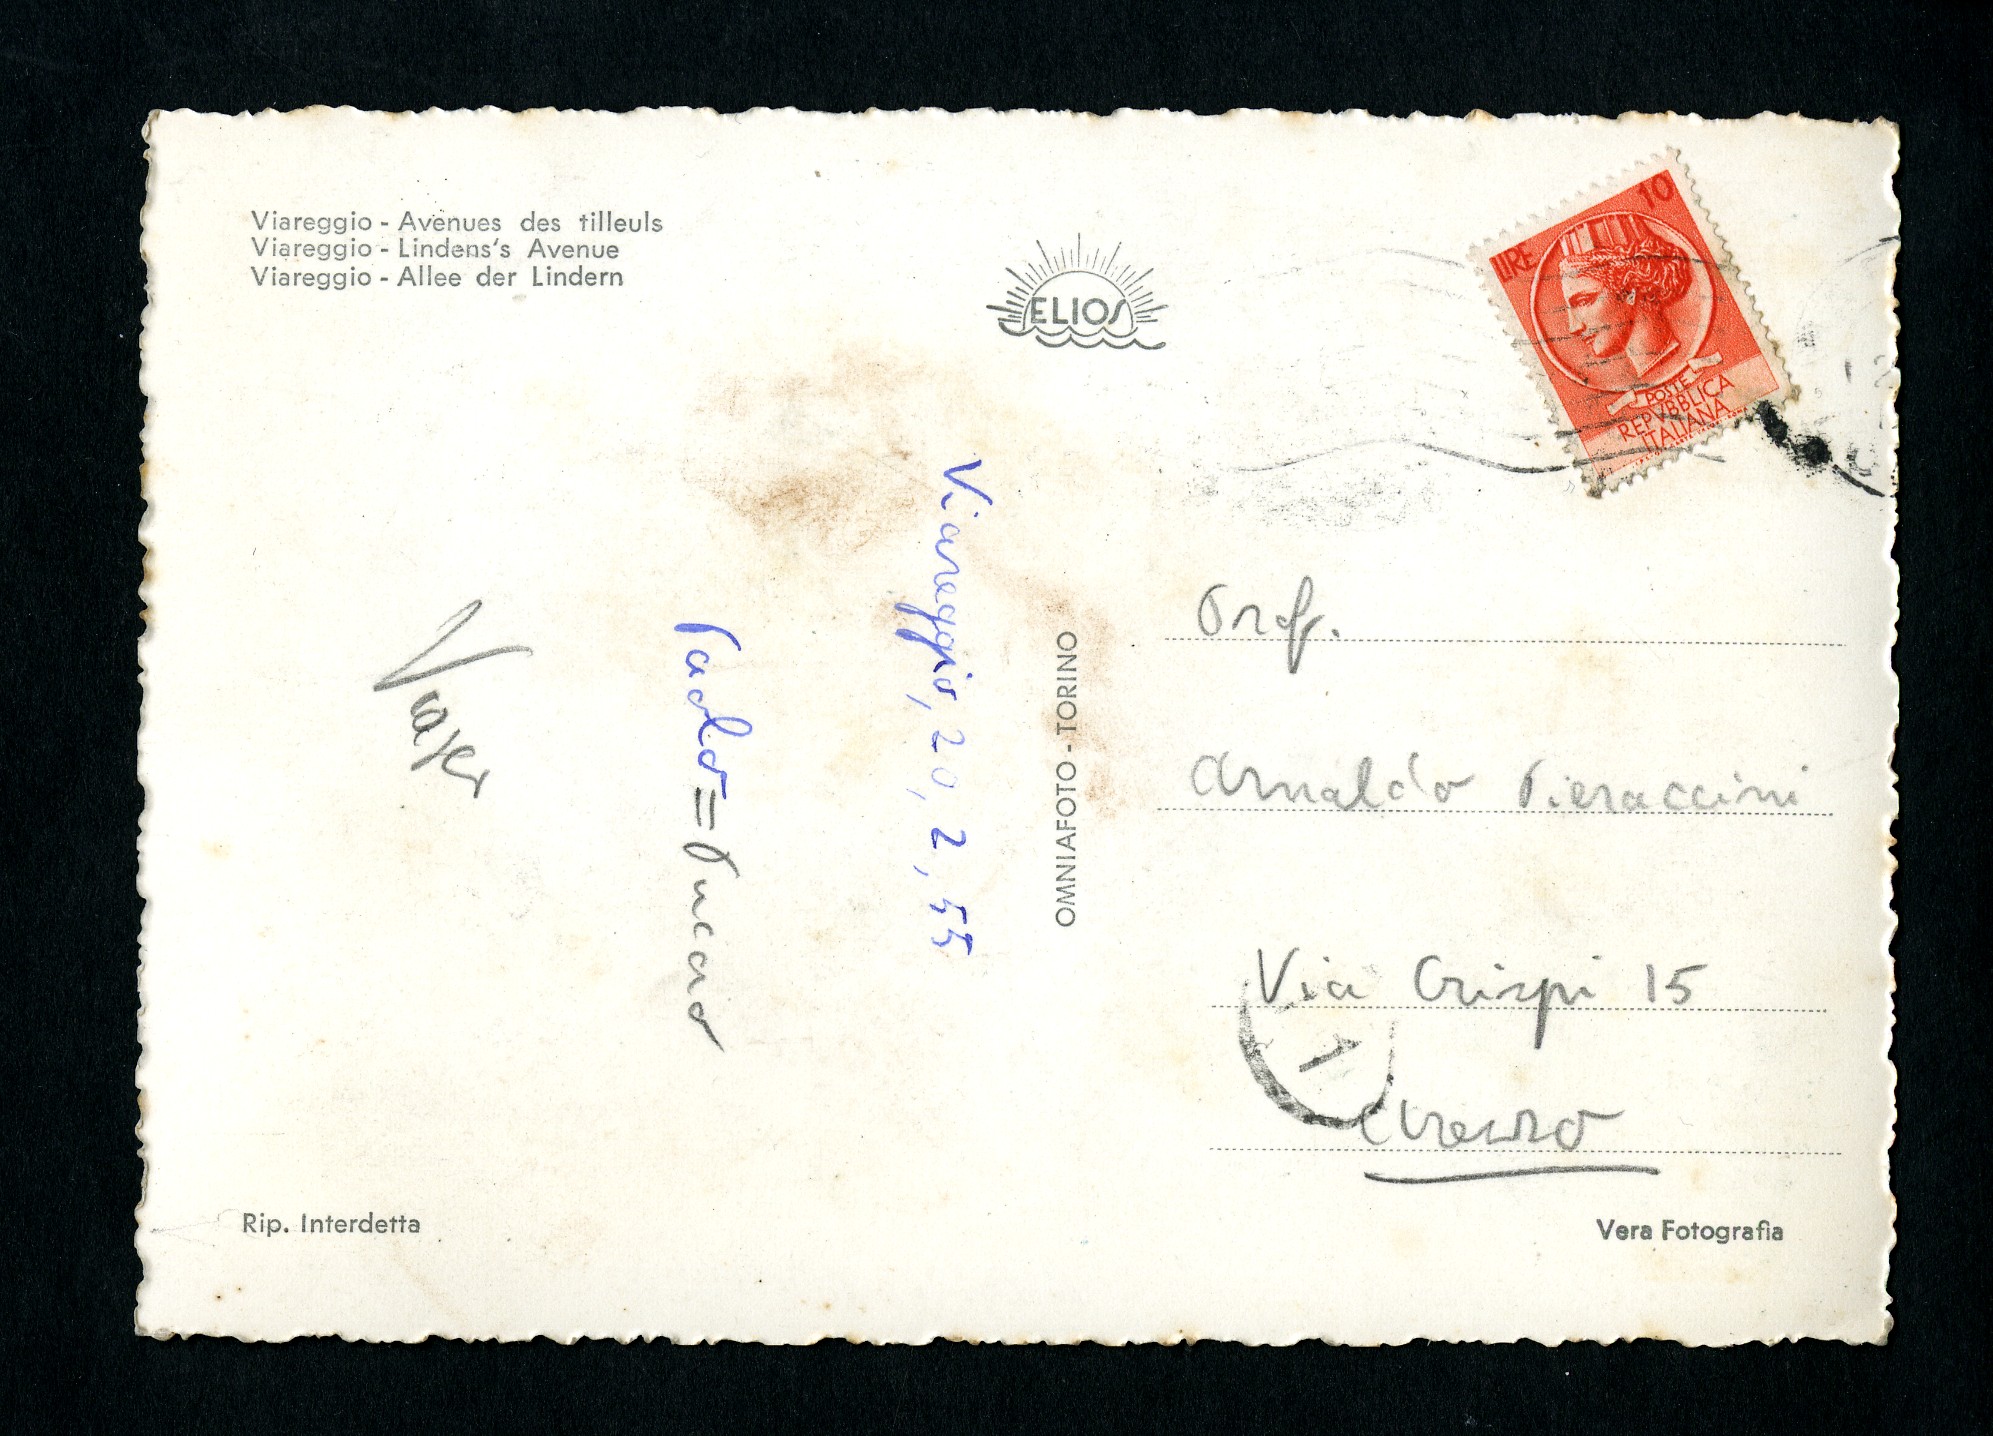 Viareggio - Avenues des tilleuls
Viareggio - Lindens's Avenue
Viareggio - Allee der Lindern
ELIOS
LIRE 10
POSTE
REPVBBLICA
ITALIANA
Viareggio, 20, 2, 55
Paolo =
OMNIAFOTO - TORINO
Prof.
Arnaldo Pieraccini
Via Crispi 15
Arezzo
Rip. Interdetta
Vera Fotografia